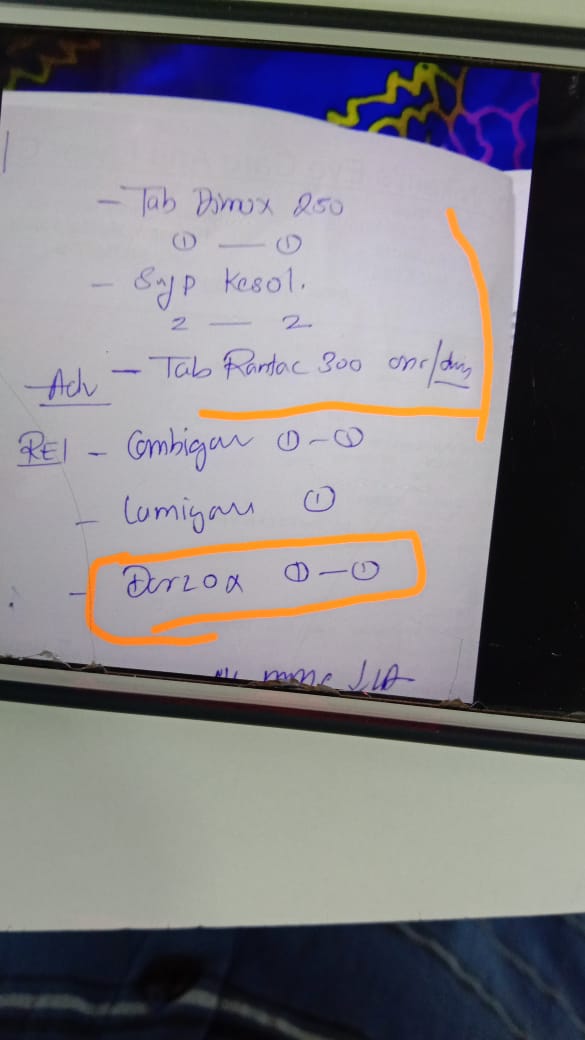 - Tab Dimox 250
① — ①
- Syp Kesol.
2 — 2
Adv - Tab Rantac 300 once/day
RE| - Combigan ① - ①
- Lumigan ①
- Dorzox ① - ①